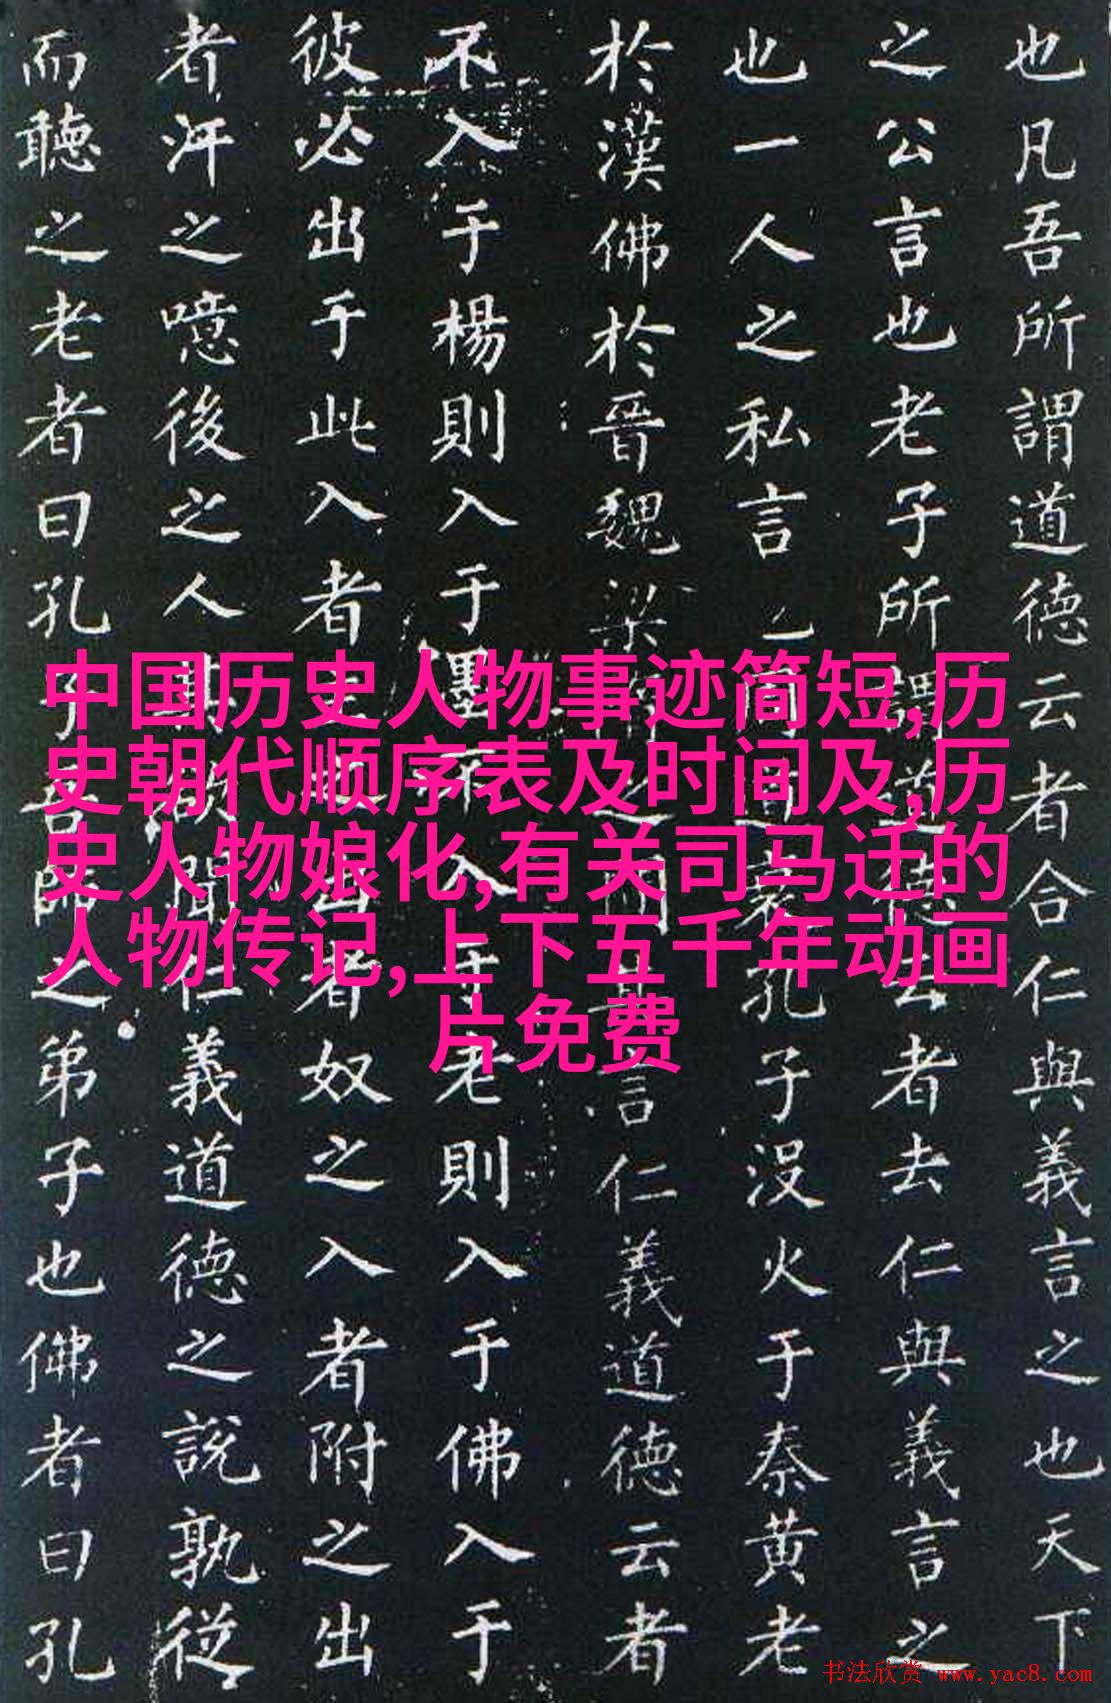 也凡吾所謂道德云者合仁與義言之也天下
之公言也老子所謂道德云者去仁與義言之
也一人之私言也周道衰孔子没火于秦黄老
於漢佛於晉魏梁隋之間其言仁義道德云者
不入于楊則入于墨不入于老則入于佛入于
彼必出于此入者主之出者奴之入者附之出
者汙之噫後之人其欲聞仁義道德之說孰從
而聽之老者曰孔子吾師之弟子也佛者曰孔
中国历史人物事迹简短,历
史朝代顺序表及时间及,历
史人物娘化,有关司马迁的
人物传记,上下五千年动画
片免费
书法欣赏 www.yac8.com